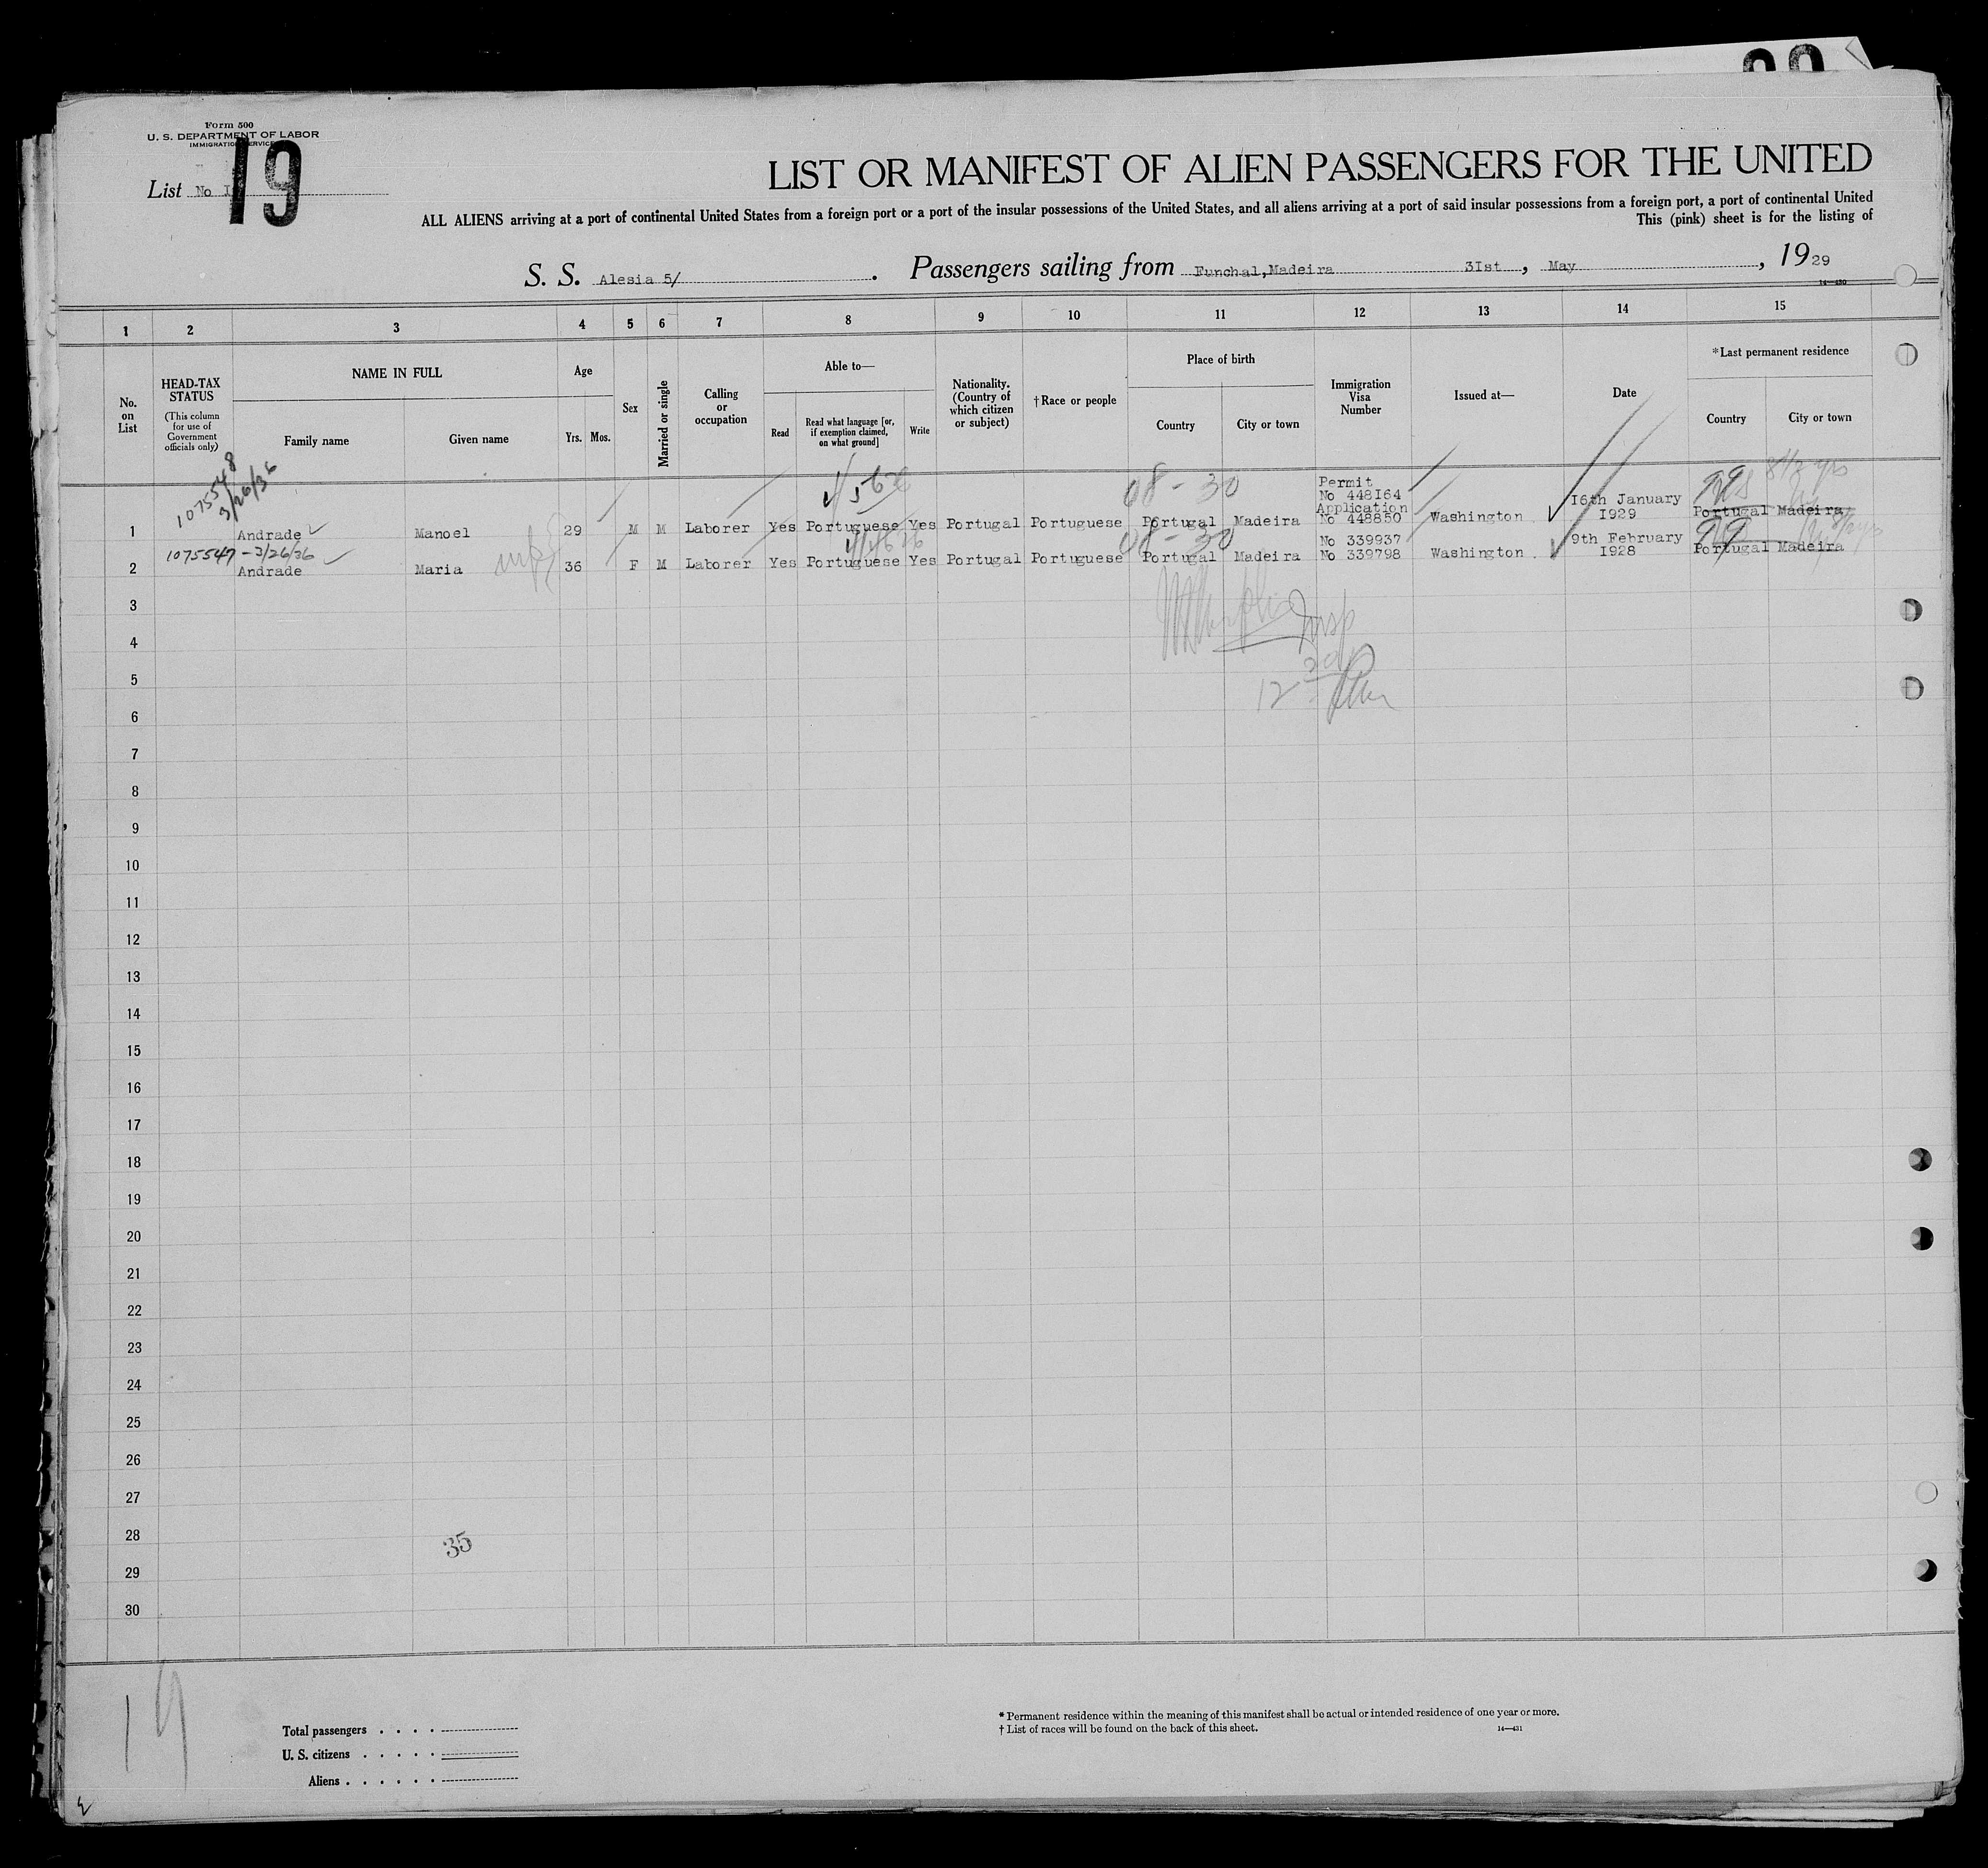 Form 500
U. S. DEPARTMENT OF LABOR
IMMIGRATION SERVICE
List No I
19
LIST OR MANIFEST OF ALIEN PASSENGERS FOR THE UNITED
ALL ALIENS arriving at a port of continental United States from a foreign port or a port of the insular possessions of the United States, and all aliens arriving at a port of said insular possessions from a foreign port, a port of continental United
This (pink) sheet is for the listing of
S. S. Alesia 5/ . Passengers sailing from Funchal,Madeira 3Ist , May , 1929
14—430
1 2 3 4 5 6 7 8 9 10 11 12 13 14 15
No. on List
HEAD-TAX STATUS
(This column for use of Government officials only)
NAME IN FULL
Family name
Given name
Age
Yrs. Mos.
Sex
Married or single
Calling or occupation
Able to—
Read
Read what language [or, if exemption claimed, on what ground]
Write
Nationality. (Country of which citizen or subject)
†Race or people
Place of birth
Country
City or town
Immigration Visa Number
Issued at—
Date
*Last permanent residence
Country
City or town
1075548
3/26/36
08-30
8 1/2 yrs
Permit
No 448I64
Application
1 Andrade Manoel 29 M M Laborer Yes Portuguese Yes Portugal Portuguese Portugal Madeira No 448850 Washington I6th January I929 Portugal Madeira
1075547 - 3/26/36
08-30
No 339937
2 Andrade Maria 36 F M Laborer Yes Portuguese Yes Portugal Portuguese Portugal Madeira No 339798 Washington 9th February I928 Portugal Madeira
3
Insp
4
5
12 30
6
7
8
9
10
11
12
13
14
15
16
17
18
19
20
21
22
23
24
25
26
27
28
35
29
30
19
Total passengers . . . .
U. S. citizens . . . . .
Aliens . . . . . .
* Permanent residence within the meaning of this manifest shall be actual or intended residence of one year or more.
† List of races will be found on the back of this sheet.
14—431